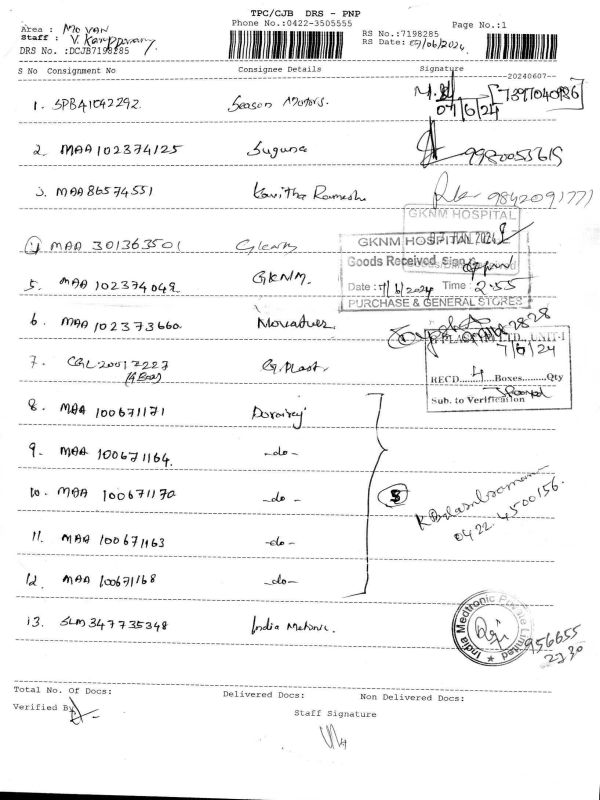 TPC/CJB DRS - PNP
Phone No.:0422-3505555
Page No.:1
Area : Mo VAN
Staff : V.
DRS No. :DCJB7198285
RS No.:7198285
RS Date: 07/06/2024
S No Consignment No Consignee Details Signature
--20240607--
1. SPB41042292 Season Motors. 07/6/24
2. MAA 102374125 Suguna
3. MAA 86574551 Kavitha Ramesh 9842091771
GKNM HOSPITAL
4 MAA 301363501
GKNM HOSPITAL
Goods Received Sign
5. MAA 102374049 GKNM.
Date : 7/6/2024 Time : 2:55
PURCHASE & GENERAL STORES
6. MAA 102373660
UNIT-I
7. CGL 20017227 G.Plast. 7/6/24
RECD......4....Boxes.........Qty
Sub. to Verification
8. MAA 100671171
9. MAA 100671164. -do-
10. MAA 100671170 -do-
5
11. MAA 100671163 -do-
0422. 4500156.
12. MAA 100671168 -do-
13. SLM 347735348 India Metronic.
India Medtronic Private Limited
956655
2730
Total No. Of Docs: Delivered Docs: Non Delivered Docs:
Verified By
Staff Signature